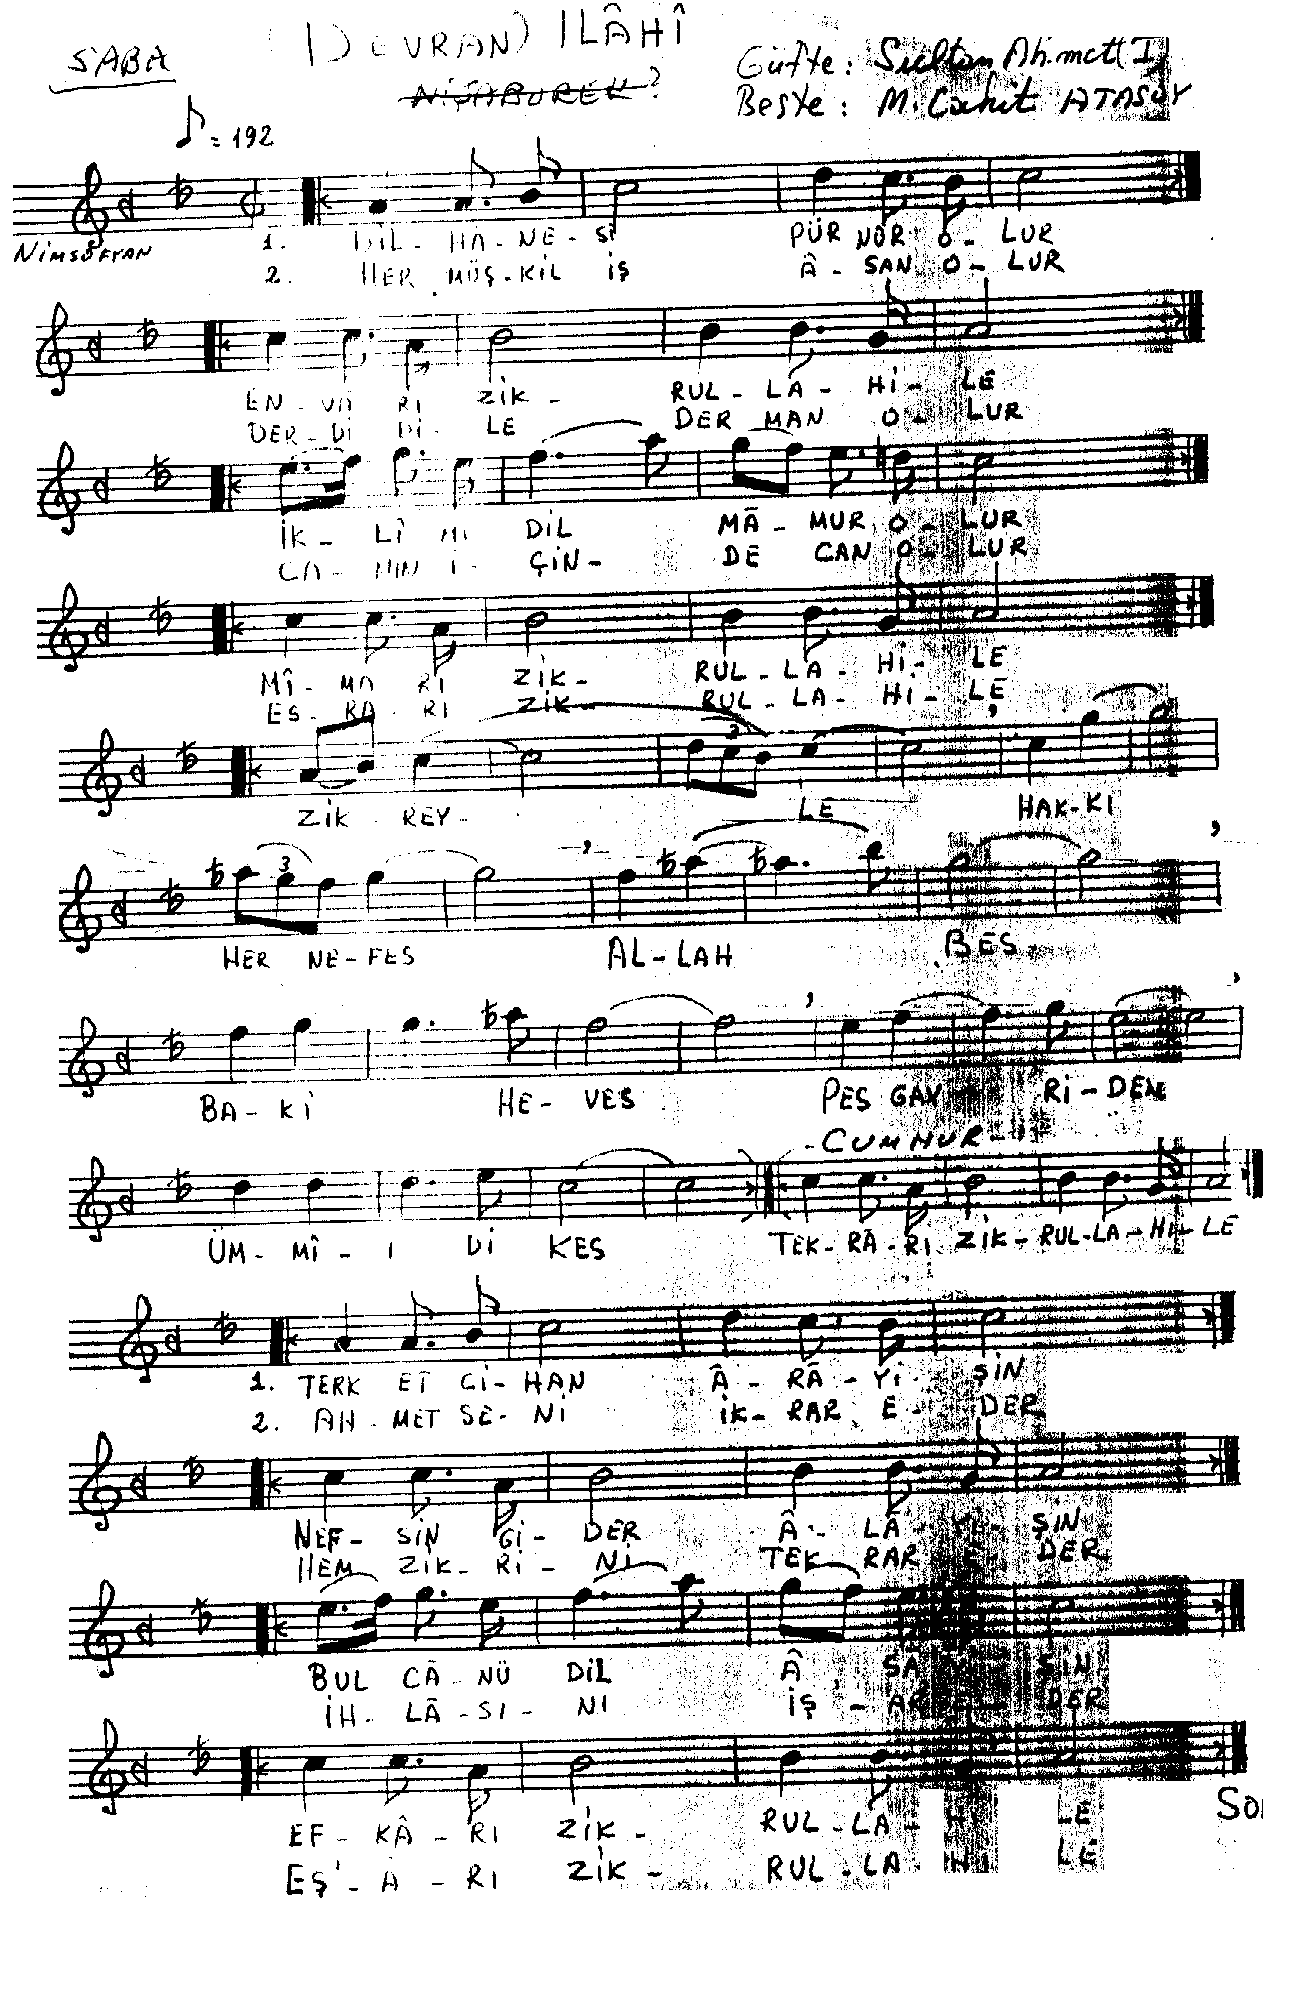 SABA
(DEVRAN) İLÂHÎ
NİŞABUREK ?
Güfte: Sultan Ahmett I
Beste: M. Cahit ATASOY
= 192
NİMSOFYAN
1. DİL - HA - NE - Sİ PÜR NUR O - LUR
2. HER MÜŞ - KİL İŞ Â - SAN O - LUR
EN - VA Rİ ZİK - RUL - LA - Hİ - LE
DER - Dİ Dİ - LE DER MAN O - LUR
İK - LÎ Mİ DİL MÂ - MUR O - LUR
CA - NIN İ - ÇİN - DE CAN O - LUR
MÎ - MA Rİ ZİK - RUL - LA - Hİ - LE
ES - RA - RI ZİK - RUL - LA - Hİ - LE
3
ZİK REY - LE HAK - KI
3
HER NE - FES AL - LAH BES
BA - Kİ HE - VES PES GAY Rİ - DEN
- CUMHUR -
ÜM - MÎ - İ Dİ KES TEK - RÂ - RI ZİK - RUL - LA - Hİ - LE
1. TERK ET Cİ - HAN Â - RÂ - Yİ - ŞİN
2. AH - MET SE - Nİ İK - RAR E - DER
NEF - SİN Gİ - DER Â - LÂ - Yİ - ŞIN
HEM ZİK - Rİ - Nİ TEK RAR E DER
BUL CÂ - NÜ DİL Â SÂ Yİ ŞİN
İH - LÂ - SI - NI İŞ - AR E - DER
EF - KÂ - RI ZİK - RUL - LÂ - H - LE
EŞ' - A - RI ZİK - RUL - LA - Hİ LE
SON